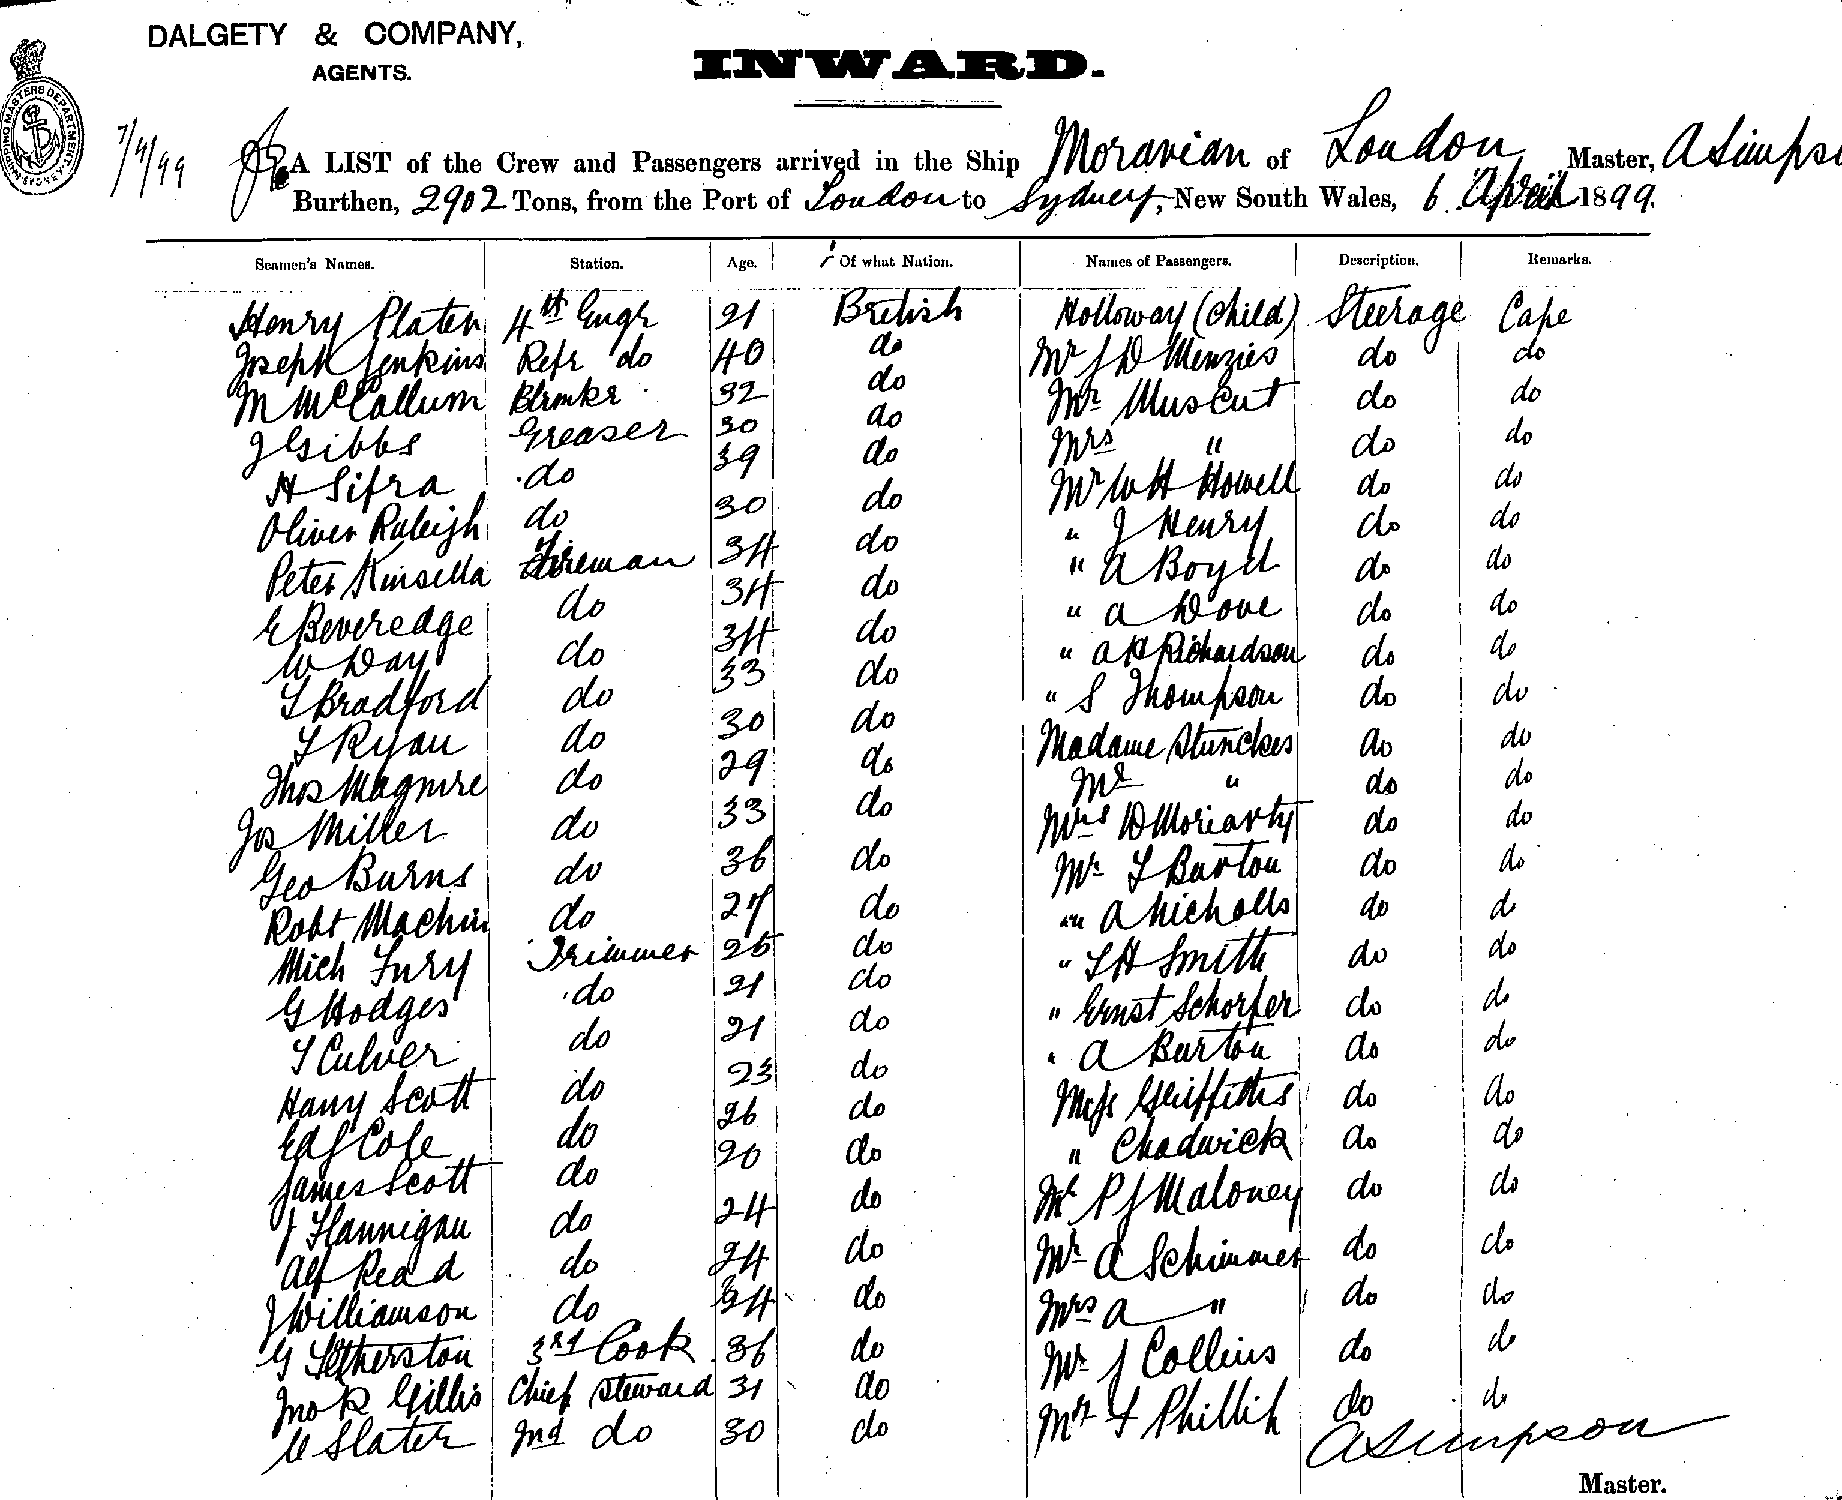 DALGETY & COMPANY,
AGENTS.
INWARD.
SHIPPING MASTERS DEPARTMENT SYDNEY
7/4/99
A LIST of the Crew and Passengers arrived in the Ship Moravian of London Master, A Simpso
Burthen, 2902 Tons, from the Port of London to Sydney, New South Wales, 6 April 1899.
Seamen's Names. Station. Age. Of what Nation. Names of Passengers. Description. Remarks.
Henry Platen 4th Engr 21 British Holloway (child) Steerage Cape
Joseph Jenkins Refr do 40 do Mr J D Menzies do do
M McCallum Blrmkr 32 do Mr Muscut do do
J Gibbs Greaser 30 do Mrs " do do
H Sifra do 39 do Mr W H Howell do do
Oliver Raleigh do 30 do " J Henry do do
Peter Kinsella Fireman 34 do " A Boyd do do
E Beveredge do 34 do " A Dove do do
W Day do 34 do " A H Richardson do do
T Bradford do 33 do " S Thompson do do
T Ryan do 30 do Madame Stunckes do do
Thos Maguire do 29 do Mr " do do
Jos Miller do 33 do Mrs D Moriarty do do
Geo Burns do 36 do Mr T Burton do do
Robt Machin do 27 do " A Nicholls do do
Mich Fury Trimmer 25 do " T H Smith do do
G Hodges do 21 do " Ernst Schorfer do do
T Culver do 21 do " A Burton do do
Harry Scott do 23 do Miss Griffiths do do
Ed J Cole do 26 do " Chadwick do do
James Scott do 20 do Mr P J Maloney do do
J Flannigan do 24 do Mr A Schimmer do do
Alf Read do 24 do Mrs A " do do
J Williamson do 24 do Mr J Collins do do
G Fetherston 3rd Cook 36 do Mr F Phillip do do
Jno R Gillis Chief Steward 31 do
Slater 2nd do 30 do
A Simpson
Master.